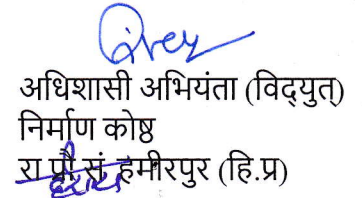 अधिशासी अभियंता (विद्युत)
निर्माण कोष्ठ
रा प्रौ सं हमीरपुर (हि.प्र)